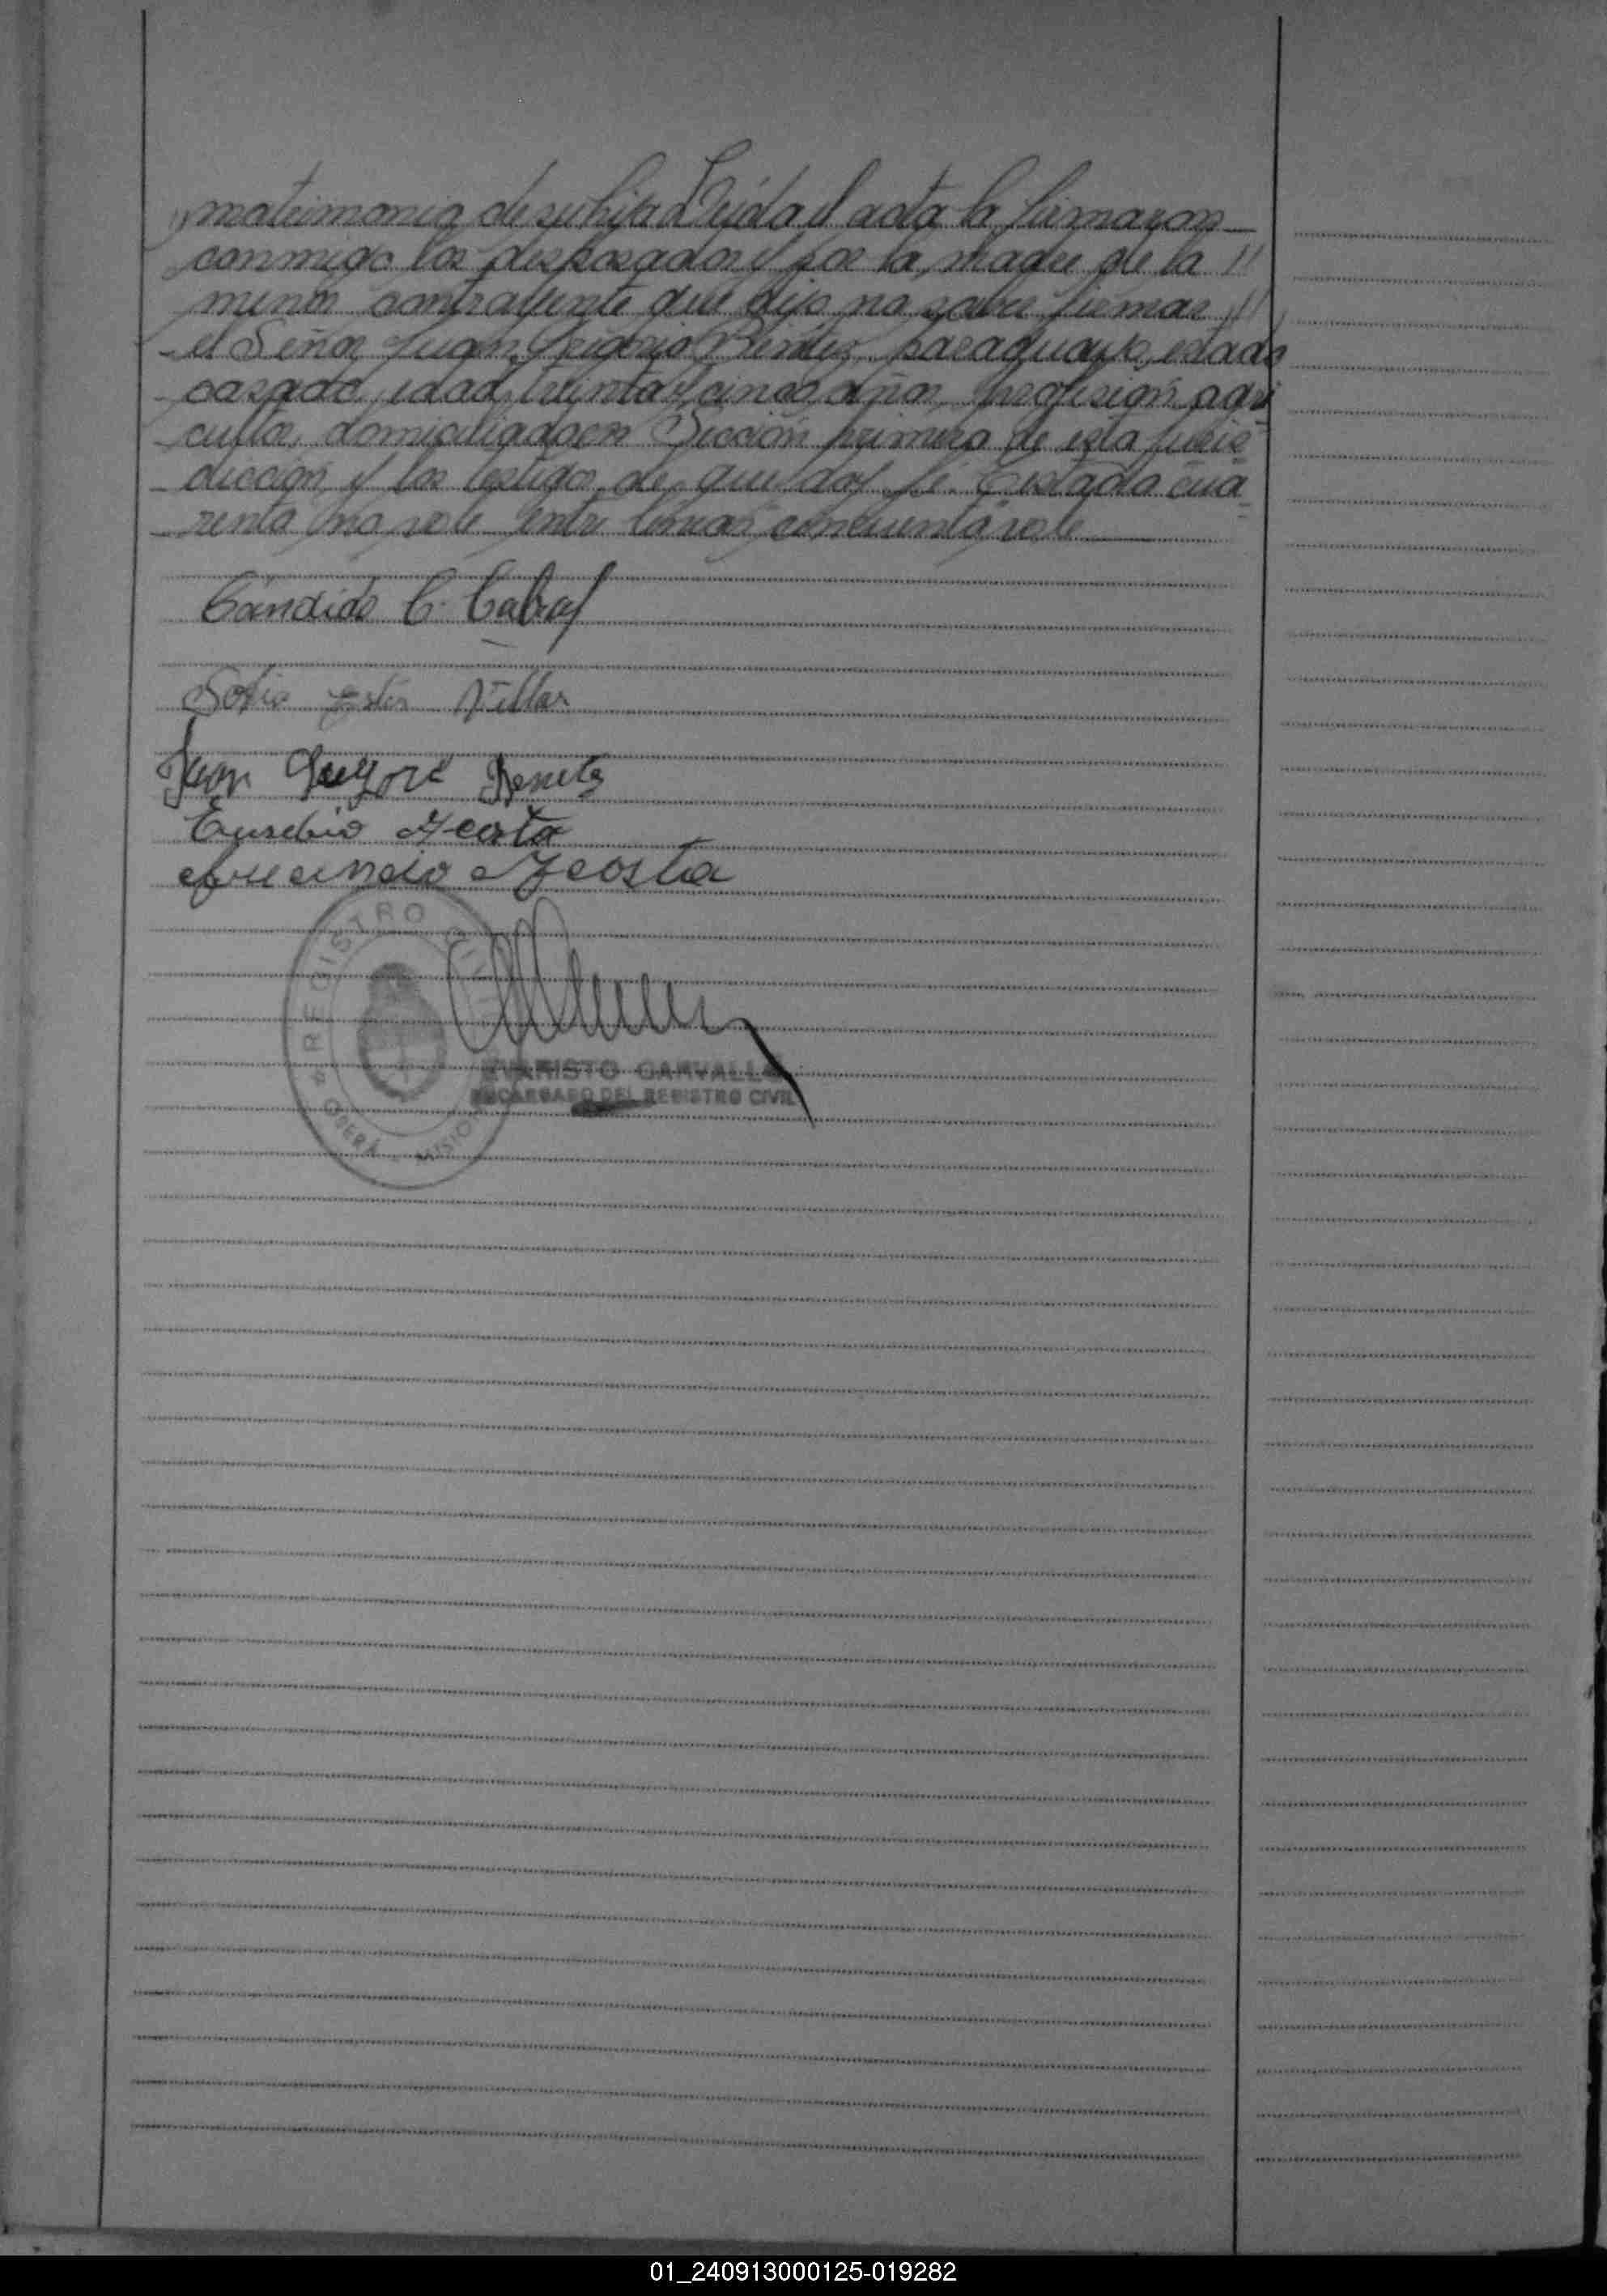 matrimonio de su hija Leída el acta la firmaron
conmigo los desposados y por la madre de la //
menor contrayente que dijo no saber firmar //
el Señor Juan Gregorio Benítez, paraguayo, estado
casado, edad treinta y cinco años, profesión agri
cultor, domiciliado en Sección primera de esta juris
dicción y los testigos de que doy fé. Testado cua
renta no vale entre lineas cincuenta vale
Cándido C. Cabral
Sofia Ester Villar
Juan Benitez
Eusebio Acosta
Acosta
REGISTRO CIVIL
OBERÁ - MISIONES
EVARISTO CARVALLO
ENCARGADO DEL REGISTRO CIVIL
01_240913000125-019282